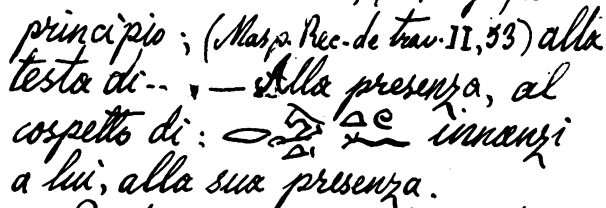 principio; (Masp. Rec. de trav. II, 53) alla
testa di.. , — Alla presenza, al
cospetto di: innanzi
a lui, alla sua presenza.